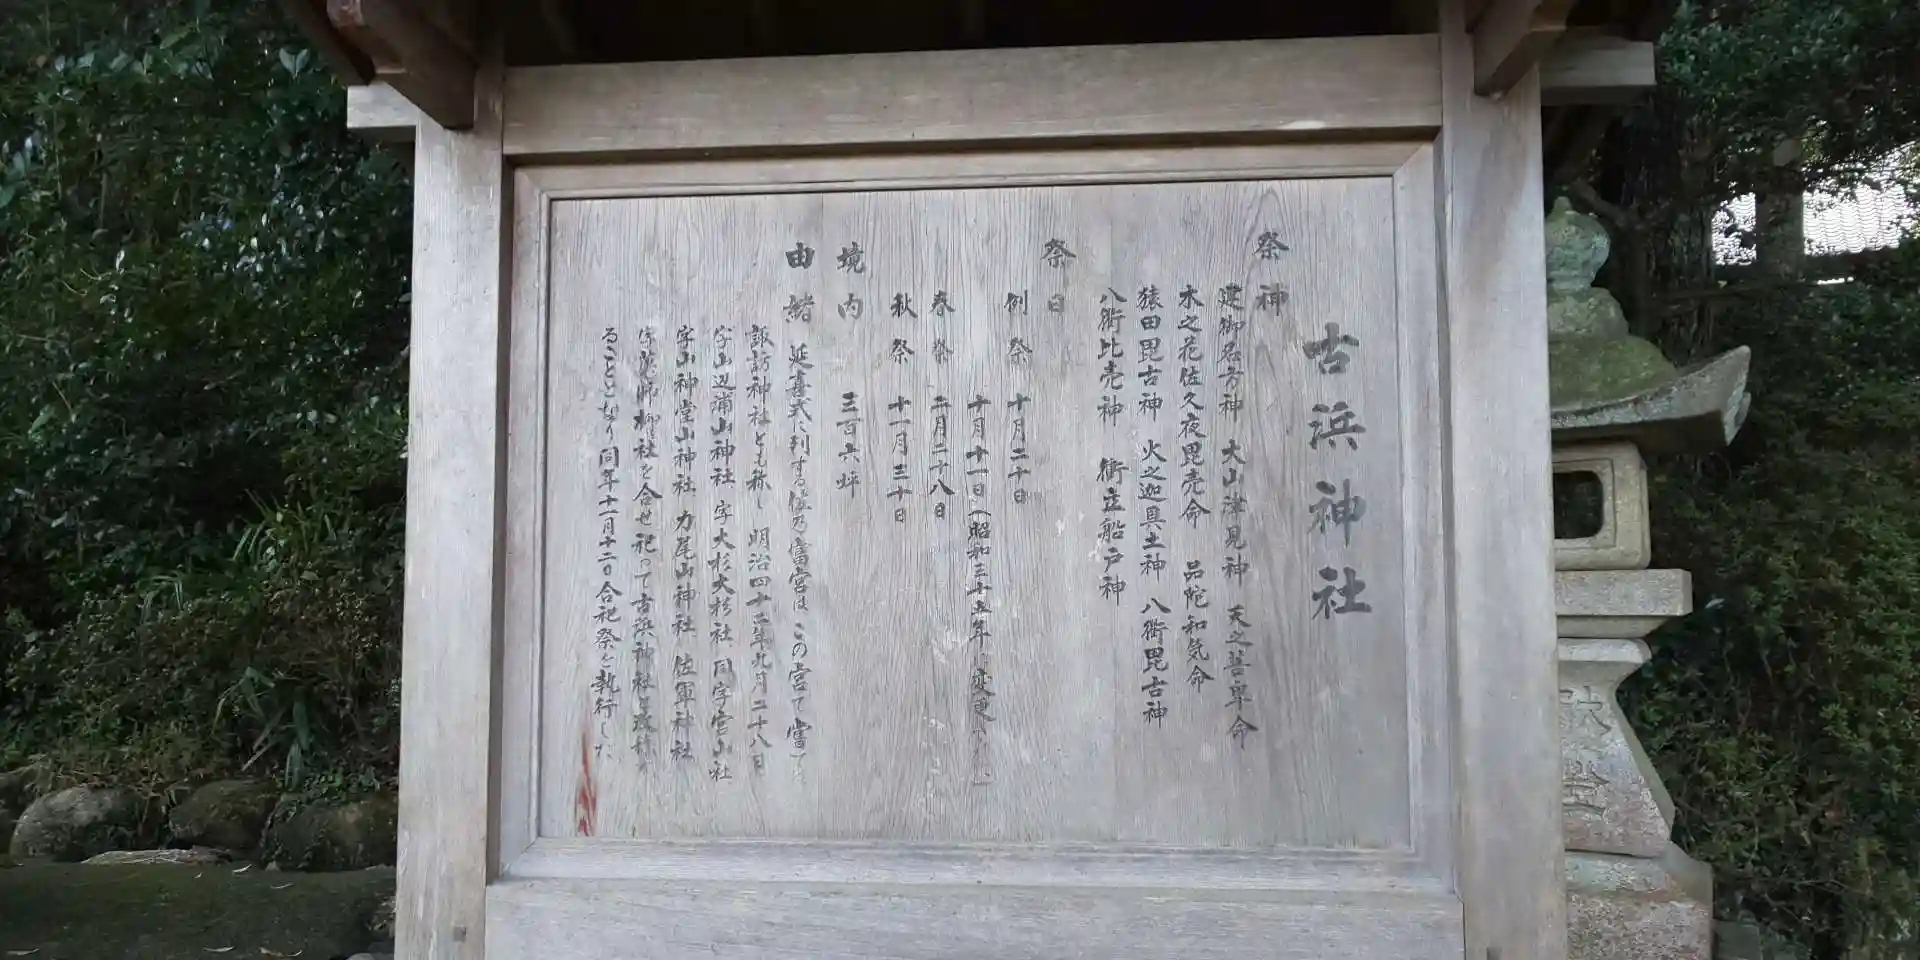 古浜神社
祭神
建御名方神 大山津見神 天之菩卑命
木之花佐久夜毘売命 品陀和気命
猿田毘古神 火之迦具土神 八衢毘古神
八衢比売神 衝立船戸神
祭日
例祭 十月二十日
十月十一日(昭和三十五年 変更
春祭 二月二十八日
秋祭 十一月三十日
境内 三百六坪
由緒 延喜式に列する 乃當宮は この宮で
諏訪神社とも称し 明治四十二年九月二十八日
字山辺浦山神社 字大杉大杉社 同字宮山社
字山神堂山神社 力尾山神社 佐軍神社
字薬師 社を合せ祀って古浜神社と改称
ることとなり同年十一月十二日合祀祭を執行した